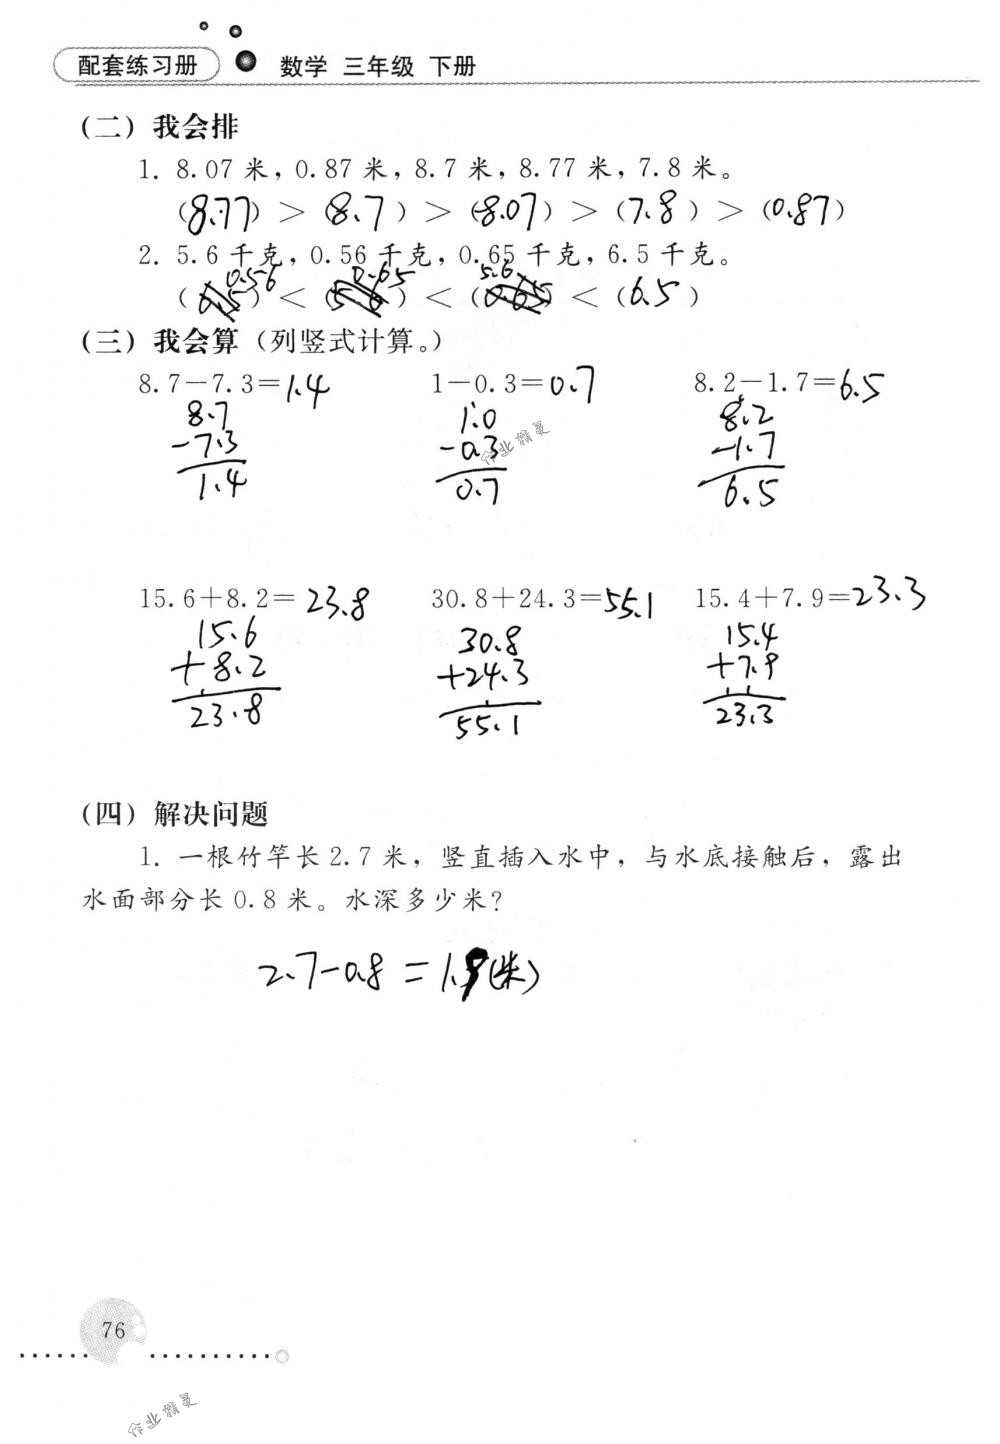 配套练习册 数学 三年级 下册
(二) 我会排
1. 8.07 米，0.87 米，8.7 米，8.77 米，7.8 米。
(8.77) > (8.7) > (8.07) > (7.8) > (0.87)
2. 5.6 千克，0.56 千克，0.65 千克，6.5 千克。
0.56 0.65 5.6
( ) < ( ) < ( ) < (6.5)
(三) 我会算 (列竖式计算。)
8.7-7.3=1.4 1-0.3=0.7 8.2-1.7=6.5
8.7 1.0 8.2
-7.3 -0.3 -1.7
1.4 0.7 6.5
作业精灵
15.6+8.2=23.8 30.8+24.3=55.1 15.4+7.9=23.3
15.6 30.8 15.4
+8.2 +24.3 +7.9
23.8 55.1 23.3
(四) 解决问题
1. 一根竹竿长 2.7 米，竖直插入水中，与水底接触后，露出
水面部分长 0.8 米。水深多少米?
2.7-0.8=1.9(米)
76
作业精灵